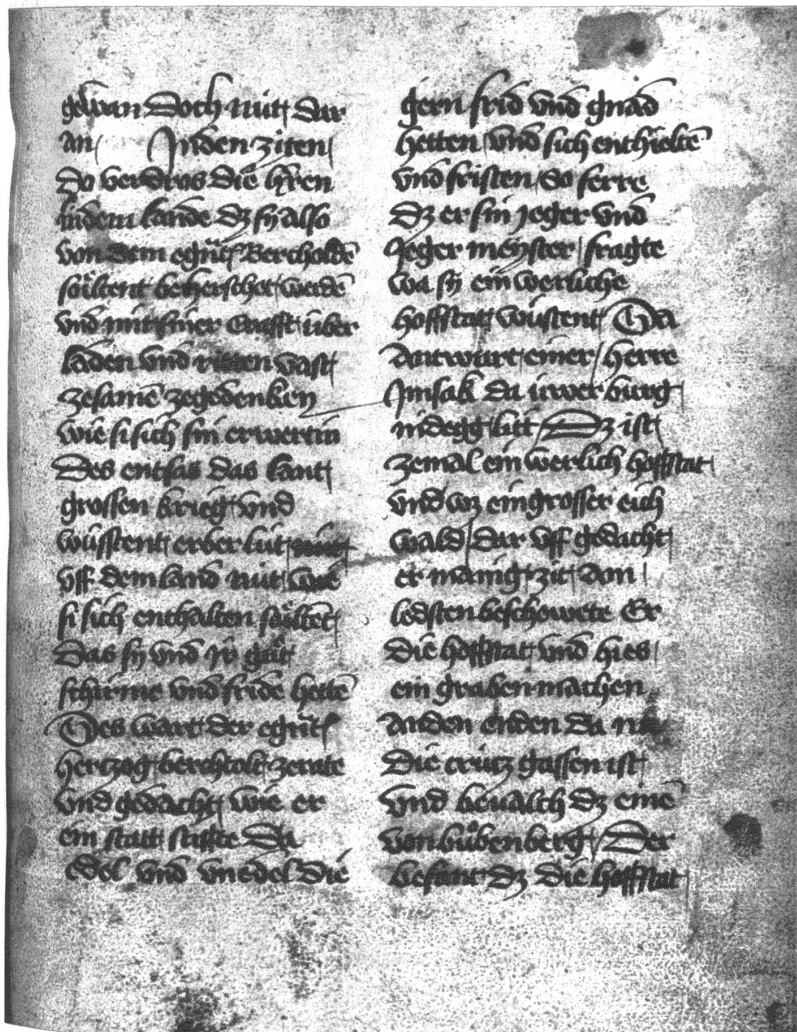 gewan Doch nüt dar
an Jn den ziten
Do verdros die h̄ren
in dem lande dz sÿ also
von dem egn̄t Berchold̄e
soͤltent beherschet werd̄e
vnd mit siner crafft über
laden vnd ritten vast
zesam̄e ze gedenken
wie si sich sin erwertin
Des entsas das lant
grossen krieg vnd
wüsstent erber lüt
vff dem land nüt wie
si sich enthalten soͤltēt
Das sÿ vnd ir guͦt
schirme vnd fride hett̄e
Des wart der egn̄t
hertzog berchtolt ze rate
vnd gedacht wie er
ein statt stiffte Da
edel vnd vnedel die
gern frid vnd gnād
hetten vnd sich enthielt̄e
vnd fristen So ferre
dz er sin jeger vnd
Jeger meÿster fragte
wa sÿ ein werliche
hoffstatt wüstent Da
Antwurt einer herre
Jm sak da üwer burg
nidegg litt Dz ist
zemal ein werlich hoffstat
vnd wz ein grosser eich
wald dar vff gedacht
er manig zit Am
ledsten beschowete Er
die hoffstat vnd hies
ein graben machen
An den enden da nu
die crütz gassen ist
vnd beualch dz ein̄e
von buͦbenberg Der
besant dz die hoffstat